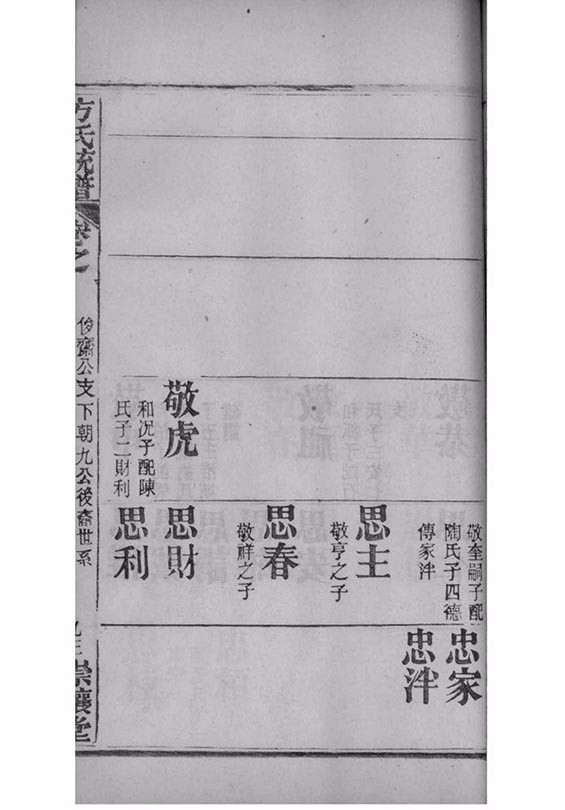 敬奎嗣子配
陶氏子四德
傳家泮
忠家
忠泮
思主
敬亨之子
思春
敬祥之子
敬虎
和況子配陳
氏子二財利
思財
思利
方氏統譜
卷之
俊齋公支下朝九公後裔世系
崇讓堂